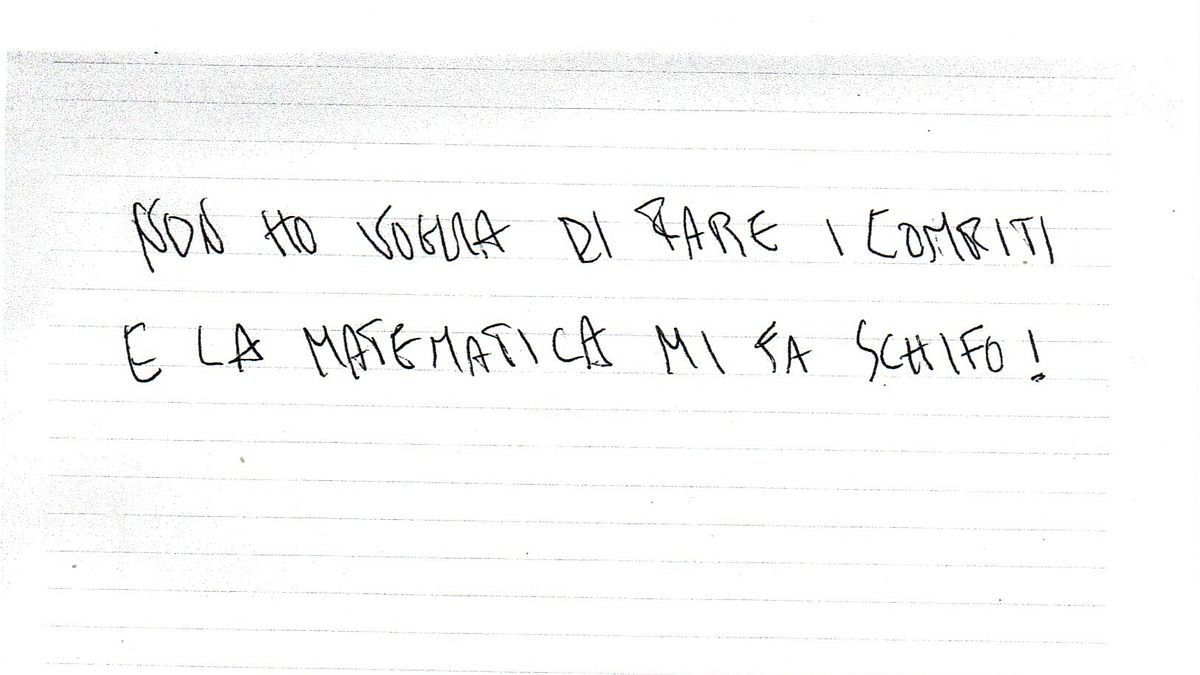 NON HO VOGLIA DI FARE I COMPITI
E LA MATEMATICA MI FA SCHIFO!